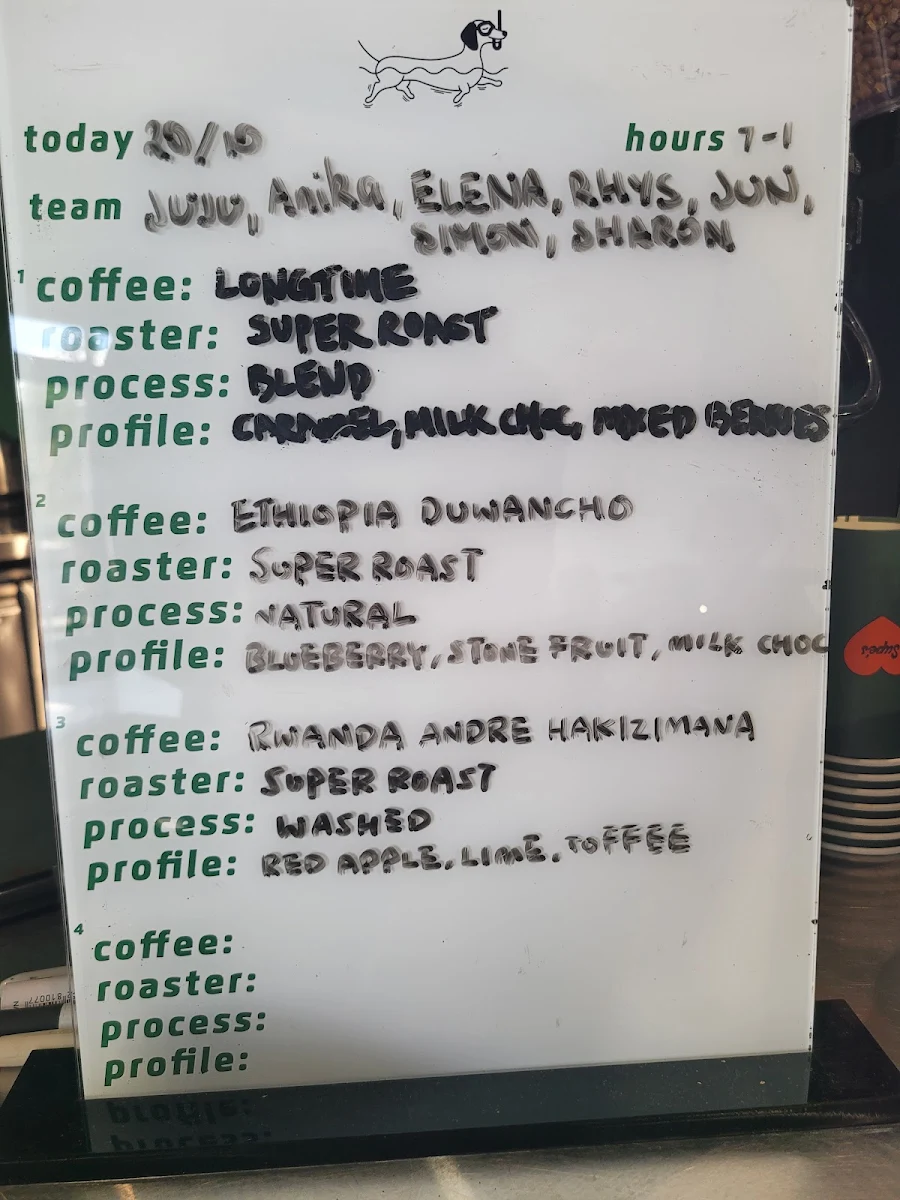 today 20/10 hours 7-1
team JUJU, Anika, ELENA, RHYS, JUN,
SIMON, SHARON
1 coffee: LONGTIME
roaster: SUPER ROAST
process: BLEND
profile: CARAMEL, MILK CHOC, MIXED BERRIES
2 coffee: ETHIOPIA DUWANCHO
roaster: SUPER ROAST
process: NATURAL
profile: BLUEBERRY, STONE FRUIT, MILK CHOC
3 coffee: RWANDA ANDRE HAKIZIMANA
roaster: SUPER ROAST
process: WASHED
profile: RED APPLE, LIME, TOFFEE
4 coffee:
roaster:
process:
profile:
Supe's